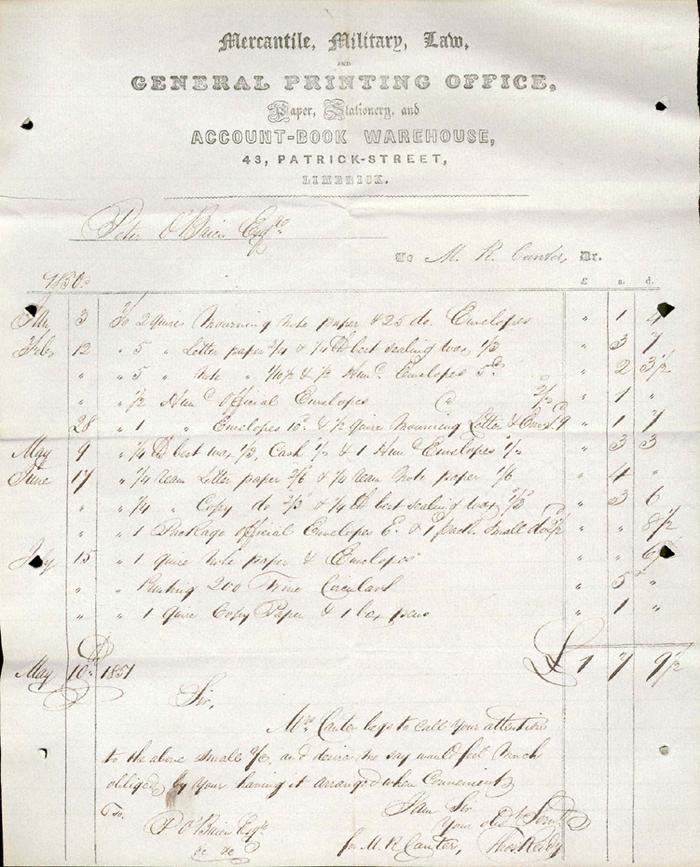 Mercantile, Military, Law,
AND
GENERAL PRINTING OFFICE,
Paper, Stationery, and
ACCOUNT-BOOK WAREHOUSE,
43, PATRICK-STREET,
LIMERICK.
Peter O'Brien Esqre
To M. R. Canter, Dr.
1850 £ s. d.
Jany 3 To 2 Quires Mourning Note paper & 25 do. Envelopes " 1 4
Feby 12 " 5 " Letter paper 2/4 & 1/4 lb best sealing wax 1/3 " 3 7
" " 5 " Note " & 1/2 Hund Envelopes " 2 3 1/2
" " 1/2 Hund Official Envelopes " 1 "
28 " 1 " Envelopes & 1/2 Quire Mourning Letter & " 1 7
May 9 " 1/4 lb best wax 1/3, Cash 1/- & 1 Hund Envelopes 1/- " 3 3
June 17 " 1/4 Ream Letter paper 2/6 & 1/4 Ream Note paper 1/6 " 4 "
" " 1/4 " Copy do 2/3 & 1/4 lb best sealing wax " 3 6
" " 1 Package Official Envelopes & 1 small do " " 8 1/2
July 15 " 1 Quire Note paper & Envelopes " " 6
" " Printing 200 Circulars " 5 "
" " 1 Quire Copy Paper & 1 box pens " 1 "
£ 1 7 9 1/2
May 10th 1851
Sir,
Mrs. Canter begs to call Your attention
to the above small a/c, and desires me say would feel Much
obliged by Your having it arranged when Convenient
I am Sir
To. Your obt Servt
P O'Brien Esqre for M. R. Canter, Thos Reidy
&c &c